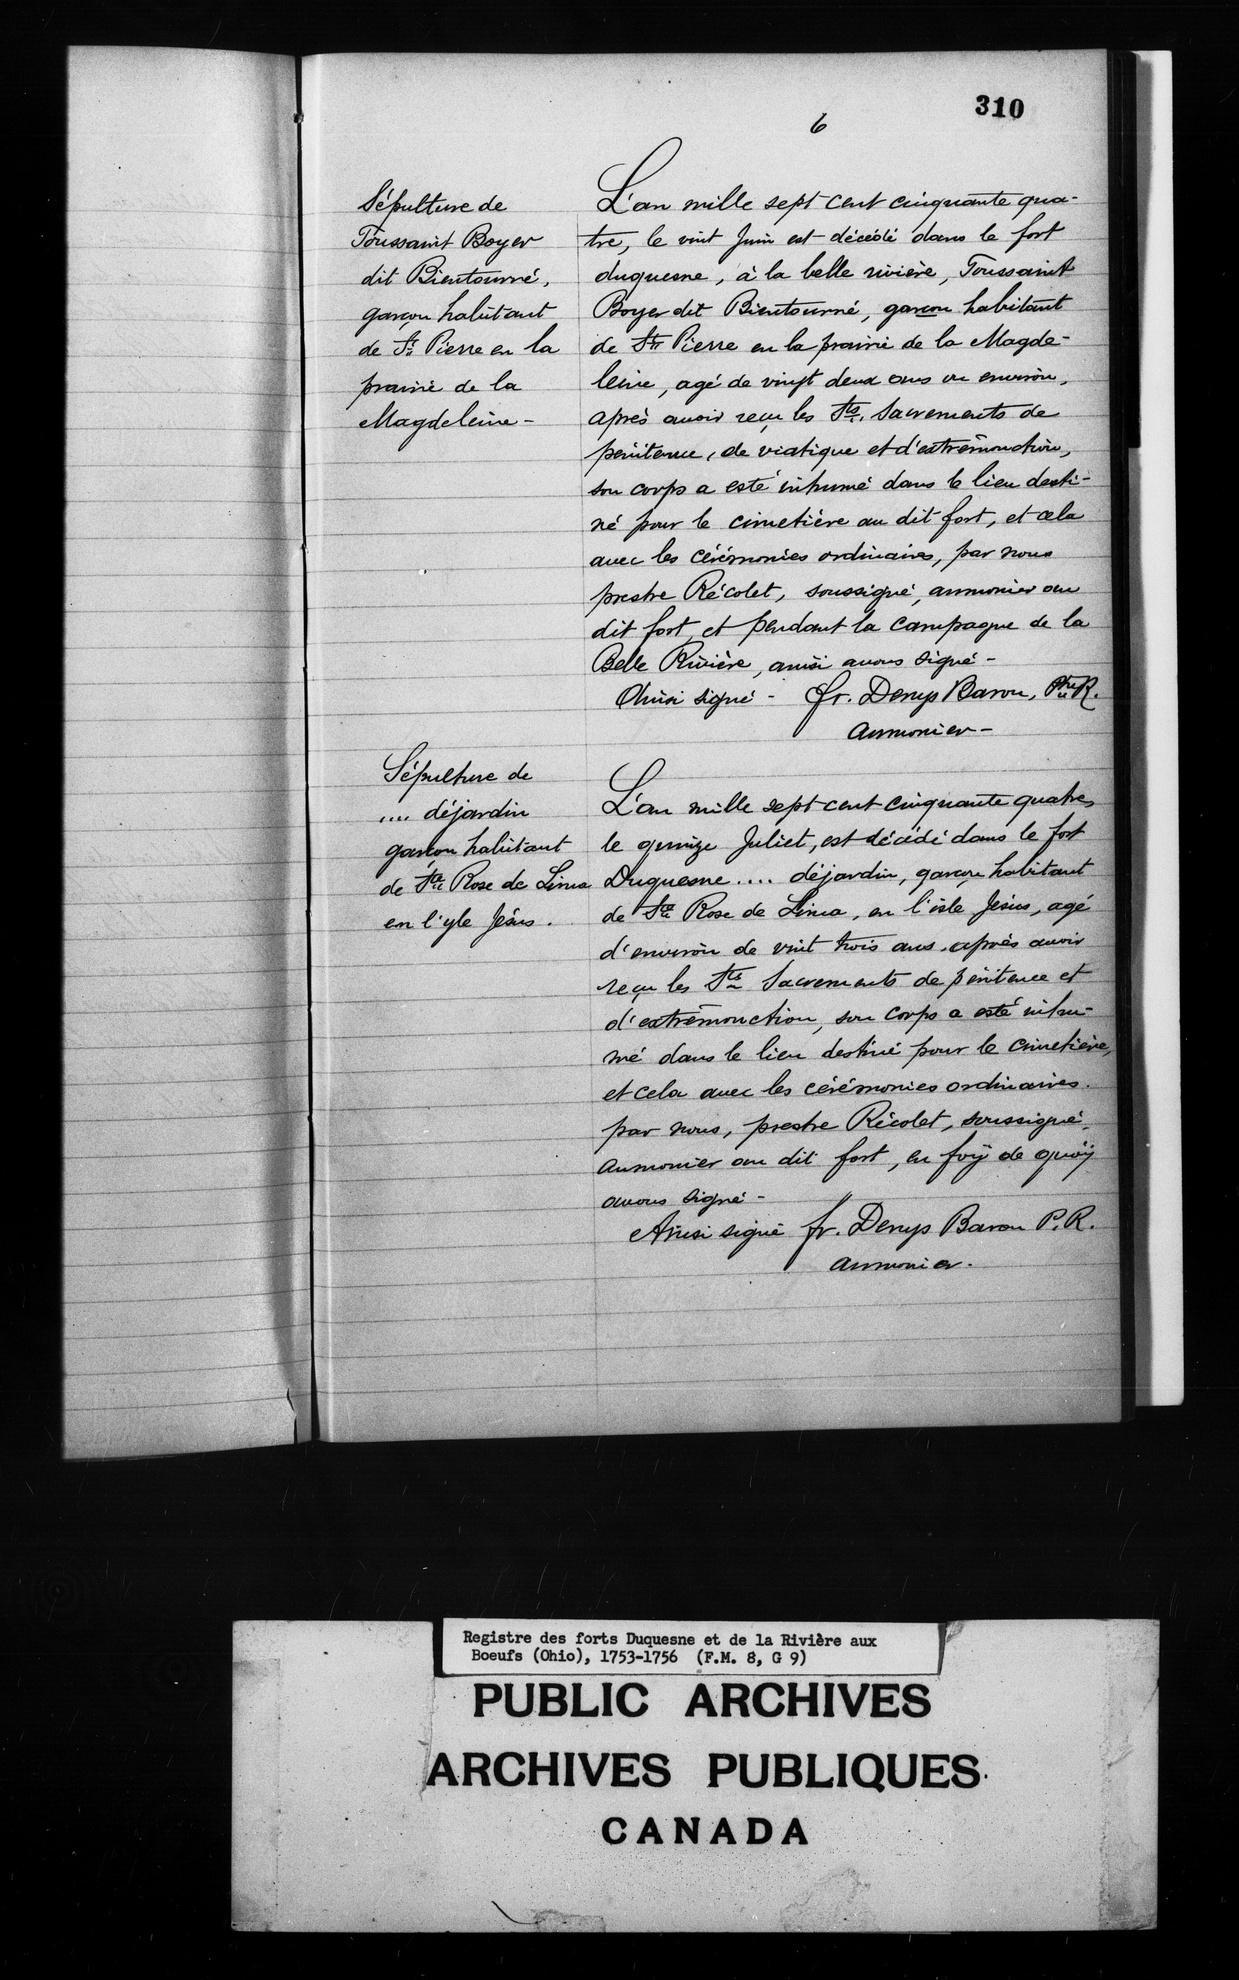 310
6
Sépulture de
Toussaint Boyer
dit Bientourné,
garçon habitant
de St Pierre en la
prairie de la
Magdeleine -
L'an mille sept cent cinquante qua-
tre, le vint Juin est décédé dans le fort
duquesne, à la belle rivière, Toussaint
Boyer dit Bientourné, garcon habitant
de St Pierre en la prairie de la Magde-
leine, agé de vingt deux ans ou environ,
après avoir reçu les Sts. Sacrements de
pénitence, de viatique et d'extrêmonction,
son corps a esté inhumé dans le lieu desti-
né pour le cimetière au dit fort, et cela
avec les cérémonies ordinaires, par nous
prestre Récolet, soussigné, aumonier au
dit fort, et pendant la campagne de la
Belle Rivière, ainsi avons signé -
Ainsi signé - fr. Denys Baron, Ptre R.
aumonier -
Sépulture de
.... déjardin
garçon habitant
de Ste Rose de Lima
en l'yle Jésus.
L'an mille sept cent cinquante quatre,
le quinze Juliet, est décédé dans le fort
Duquesne .... déjardin, garçon habitant
de Ste Rose de Lima, en l'isle Jésus, agé
d'environ de vint trois ans, après avoir
reçu les Sts Sacrements de pénitence et
d'extrêmonction, son corps a esté inhu-
mé dans le lieu destiné pour le cimetière,
et cela avec les cérémonies ordinaires.
par nous, prestre Récolet, soussigné,
aumonier au dit fort, en foÿ de quoÿ
avons signé -
Ainsi signé fr. Denys Baron P. R.
aumonier.
Registre des forts Duquesne et de la Rivière aux
Boeufs (Ohio), 1753-1756 (F.M. 8, G 9)
PUBLIC ARCHIVES
ARCHIVES PUBLIQUES
CANADA